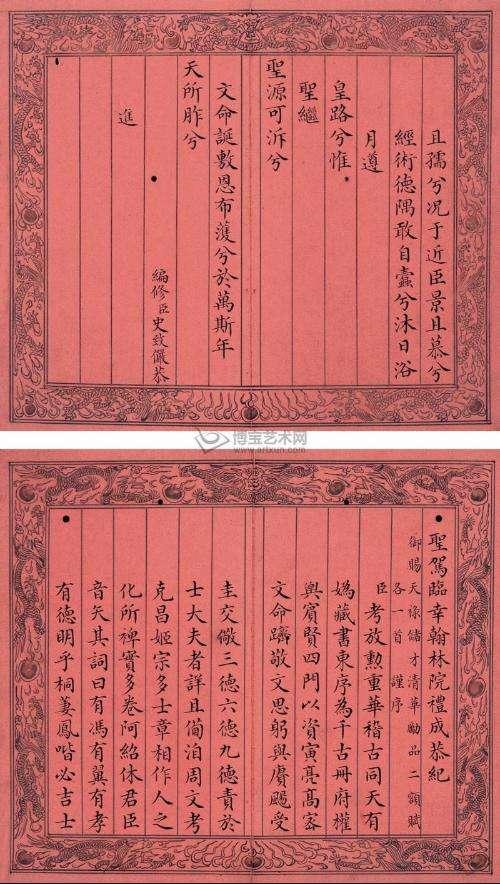 且孺兮況于近臣景且慕兮
經術德隅敢自蠹兮沐日浴
月遵
皇路兮惟
聖繼
聖源可泝兮
文命誕敷恩布濩兮於萬斯年
天所胙兮
編修臣史致儼恭
進
博宝艺术网
www.artxun.com
聖駕臨幸翰林院禮成恭紀
御賜天祿儲才清華勵品二額賦
各一首 謹序
臣考放勳重華稽古同天有
媯藏書東序為千古冊府權
輿賓賢四門以資寅亮高密
文命躋敬文思躬與賡颺受
圭交儆三德六德九德責於
士大夫者詳且備洎周文考
克昌姬宗多士章相作人之
化所裨實多卷阿紹休君臣
音矢其詞曰有馮有翼有孝
有德明乎桐萋鳳喈必吉士